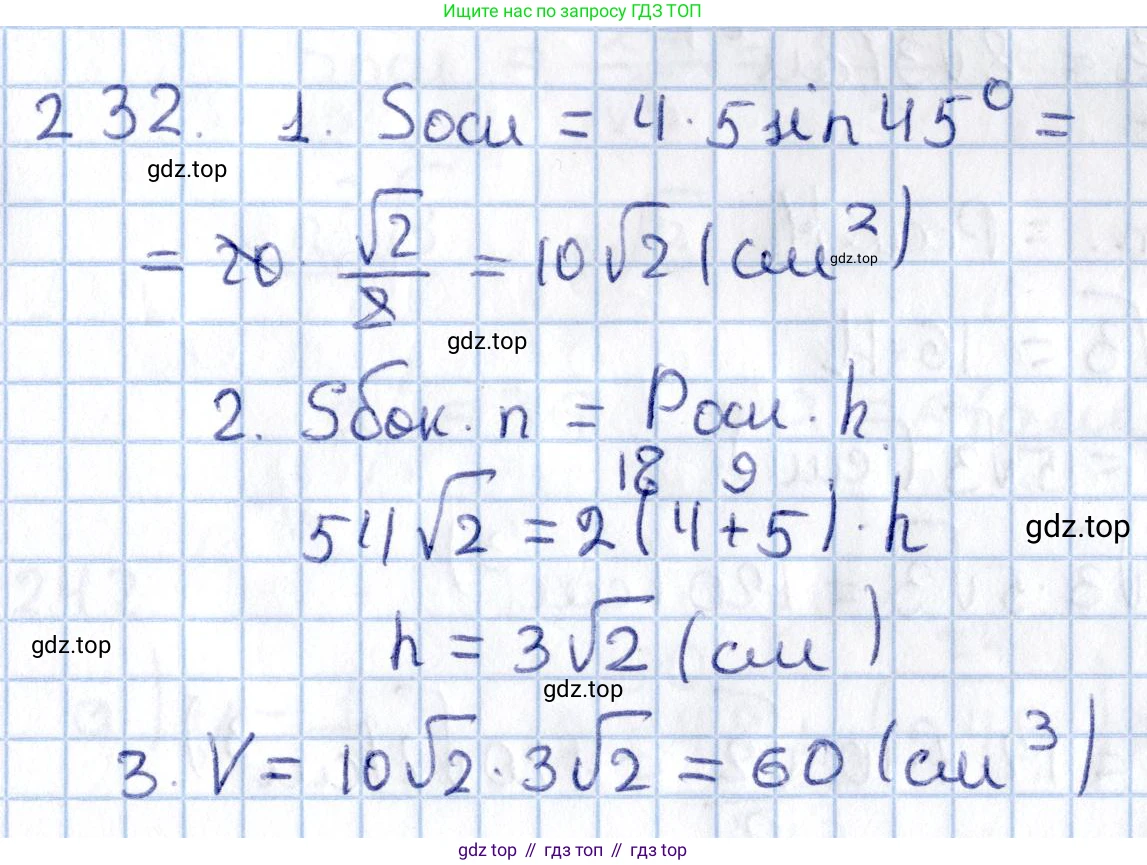 Ищите нас по запросу ГДЗ ТОП
232. 1. Sосн = 4 · 5 sin 45⁰ =
gdz.top
= 20 · √2/2 = 10√2 (см²)
gdz.top
gdz.top
2. Sбок. п = Pосн · h
18 9
54√2 = 2(4+5) · h
gdz.top
h = 3√2 (см)
gdz.top
gdz.top
3. V = 10√2 · 3√2 = 60 (см³)
gdz.top // гдз топ // gdz.top